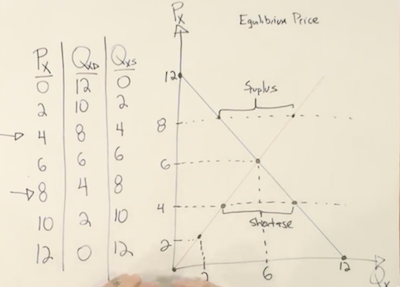 Equlibrium Price
Px QxD Qxs
0 12 0
2 10 2
4 8 4
6 6 6
8 4 8
10 2 10
12 0 12
Px
12
8
6
4
2
Suplus
Shortage
2 6 12
Qx